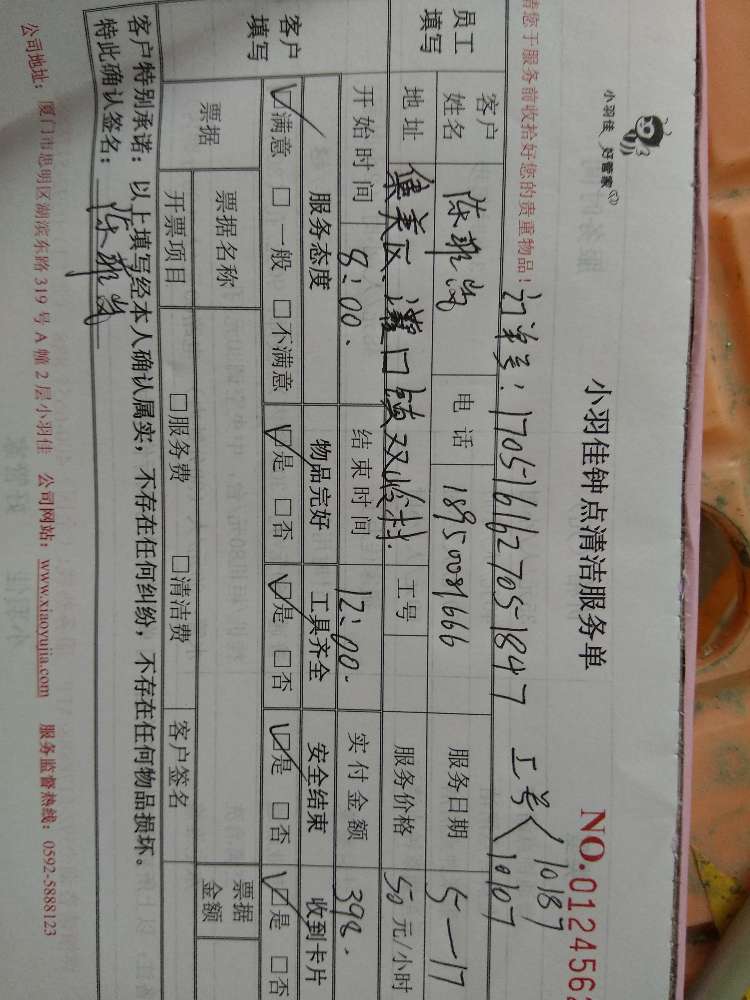 小羽佳 好管家
小羽佳钟点清洁服务单
NO.012456
您于服务前收拾好您的贵重物品!
订单号:170516162705-1847 工号 10187
10107
员工填写
客户姓名 陈雅岚 电话 18950081666 服务日期 5-17
地址 集美区灌口镇双岭村 工号 服务价格 50 元/小时
开始时间 8:00. 结束时间 12:00. 实付金额 398.
客户填写
服务态度 物品完好 工具齐全 安全结束 收到卡片
☑满意 □一般 □不满意 ☑是 □否 ☑是 □否 ☑是 □否 ☑是 □否
票据 票据名称 票据金额
开票项目 □服务费 □清洁费 客户签名
客户特别承诺:以上填写经本人确认属实,不存在任何纠纷,不存在任何物品损坏。
特此确认签名:陈雅岚
公司地址:厦门市思明区湖滨东路 319 号 A 幢 2 层小羽佳 公司网站:www.xiaoyujia.com 服务监督热线:0592-5888123